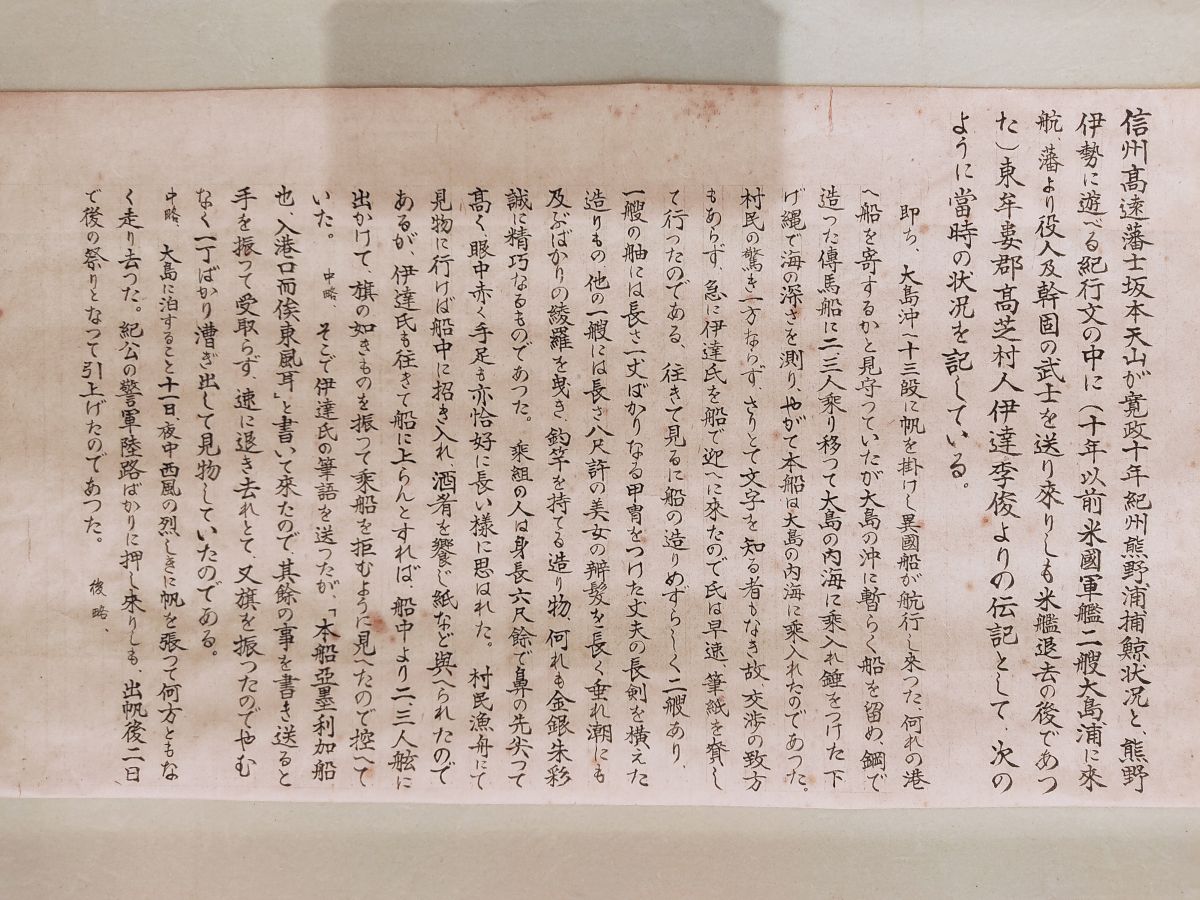 信州髙遠藩士坂本天山が寛政十年紀州熊野浦捕鯨状況と、熊野
伊勢に遊べる紀行文の中に(十年以前米國軍艦二艘大島浦に來
航、藩より役人及幹固の武士を送り來りしも米艦退去の後であつ
た)東牟婁郡髙芝村人伊達李俊よりの伝記として、次の
ように當時の状況を記している。
即ち、大島沖へ十三段に帆を掛けし異國船が航行し來つた、何れの港
へ船を寄するかと見守つていたが大島の沖に暫らく船を留め、鋼で
造つた傳馬船に二三人乗り移つて大島の内海に乗入れ錘をつけた下
げ縄で海の深さを測り、やがて本船は大島の内海に乗入れたのであつた。
村民の驚き一方ならず、さりとて文字を知る者もなき故、交渉の致方
もあらず、急に伊達氏を船で迎へに來たので氏は早速、筆紙を賫し
て行つたのである、往きて見るに船の造りめずらしく二艘あり、
一艘の舳には長さ一丈ばかりなる甲冑をつけた丈夫の長剣を横えた
造りもの他の一艘には長さ八尺許の美女の辮髪を長く垂れ潮にも
及ぶばかりの綾羅を曳き、釣竿を持てる造り物、何れも金銀朱彩
誠に精巧なるものであつた。乘組の人は身長六尺餘で鼻の先尖つて
髙く、眼中赤く手足も亦恰好に長い様に思はれた。村民漁舟にて
見物に行けば船中に招き入れ、酒肴を饗じ紙など與へられたので
あるが、伊達氏も往きて船に上らんとすれば、船中より二、三人舷に
出かけて、旗の如きものを振つて乘船を拒むように見へたので控へて
いた。中略、そこで伊達氏の筆語を送つたが、「本船亞墨利加船
也、入港口而俟東風耳」と書いて來たので、其餘の事を書き送ると
手を振つて受取らず、速に退き去れとて、又旗を振つたのでやむ
なく一丁ばかり漕ぎ出して見物していたのである。
中略、大島に泊すること十一日夜中西風の烈しきに帆を張つて何方ともな
く走り去つた。紀公の警軍陸路ばかりに押し來りしも、出帆後二日
で後の祭りとなつて引上げたのであつた。後略、